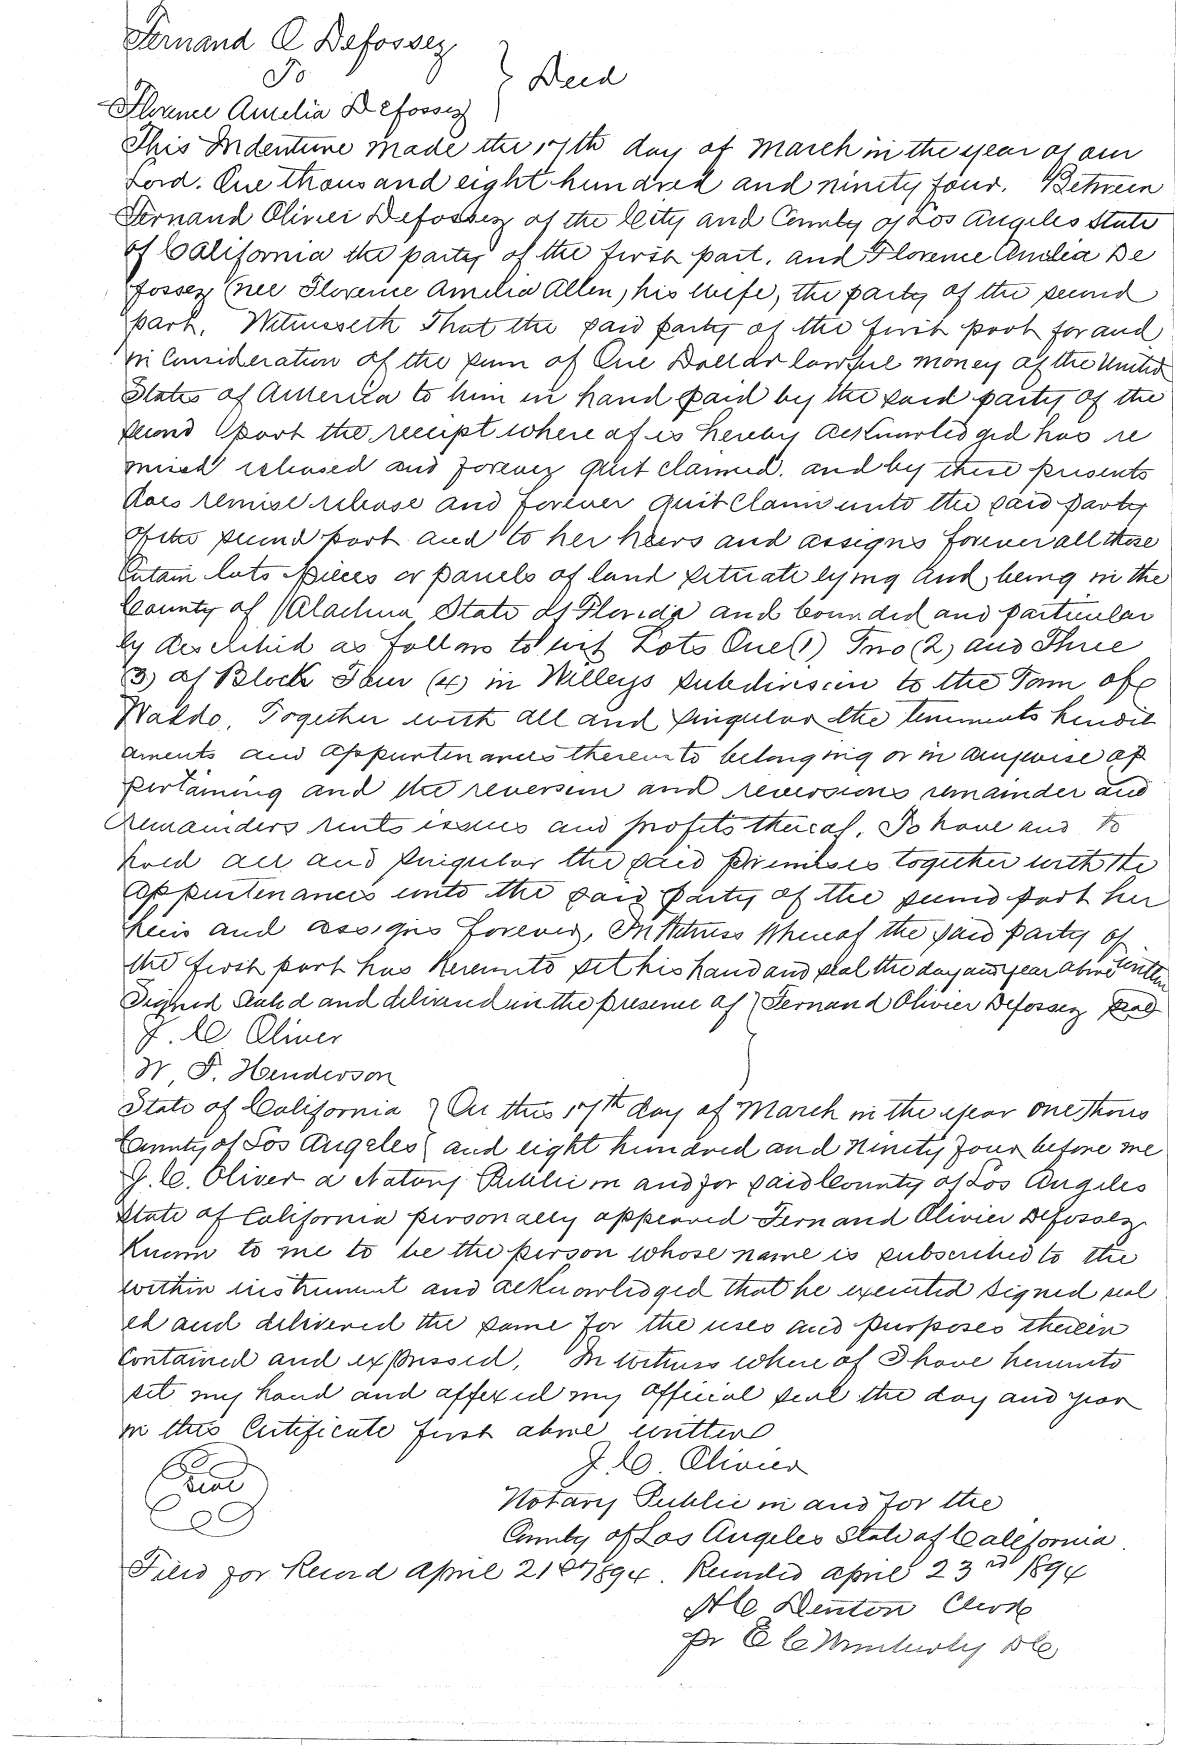 Fernand O Defossez
To
} Deed
Florence Amelia Defossez
This Indenture made the 17th day of March in the year of our
Lord. One thousand eight hundred and ninity four. Between
Fernand Olivier Defossez of the City and County of Los Angeles State
of California the party of the first part. and Florence Amelia De
fossez (nee Florence Amelia Allen) his wife, the party of the second
part. Witnesseth That the said party of the first part for and
in Consideration of the sum of One Dollar lawful money of the United
States of America to him in hand paid by the said party of the
second part the receipt where of is hereby acknowledged has re
mised released and forever quit claimed. and by these presents
does remise release and forever quit Claim unto the said party
of the second part and to her heirs and assigns forever all those
Certain lots pieces or parcels of land situate lying and being in the
County of Alachua State of Florida and bounded and particular
ly described as follows to wit Lots One (1) Two (2) and Three
(3) of Block Four (4) in Willeys subdivision to the Town of
Waldo. Together with all and singular the tenements heredit
aments and appurtenances thereunto belonging or in anywise ap
pertaining and the reversion and reversions remainder and
remainders rents issues and profits thereof. To have and to
hold all and singular the said premises together with the
appurtenances unto the said party of the second part her
heirs and assigns forever, In Witness Whereof the said party of
the first part has hereunto set his hand and seal the day and year above written
Signed Sealed and delivered in the presence of } Fernand Olivier Defossez seal
J. C Oliver
W. F. Henderson
State of California } On this 17th day of March in the year one thous
County of Los Angeles } and eight hundred and Ninety four before me
J. C. Oliver a Notary Public in and for said County of Los Angeles
State of California personally appeared Fernand Olivier Defossez
Known to me to be the person whose name is subscribed to the
within instrument and acknowledged that he executed signed seal
ed and delivered the same for the uses and purposes therein
contained and expressed. In witness where of I have hereunto
set my hand and affixed my official seal the day and year
in this Certificate first above written
J. C. Olivier
Seal
Notary Public in and for the
County of Los Angeles State of California.
Filed for Record April 21st 1894. Recorded April 23rd 1894
H C Denton Clerk
pr E C Wimberly D C